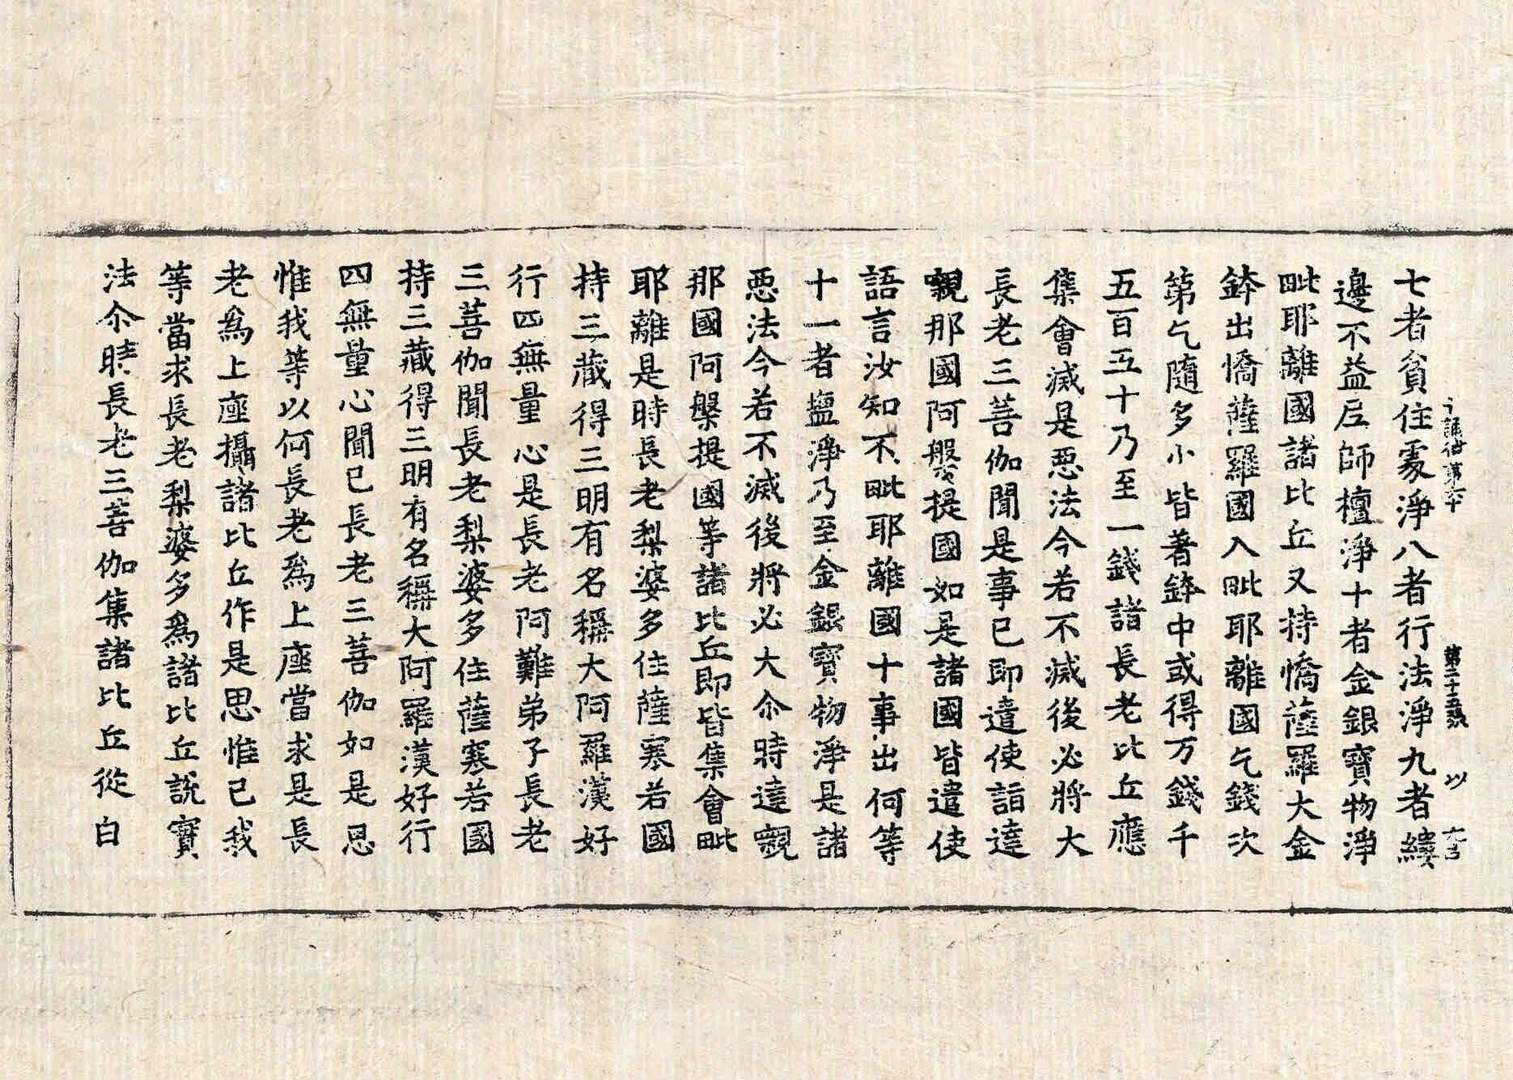 七者貧住處淨八者行法淨九者縷
十誦律第六十 第二十五張 以
邊不益尼師檀淨十者金銀寶物淨
毗耶離國諸比丘又持憍薩羅大金
鉢出憍薩羅國入毗耶離國乞錢次
第乞隨多小皆著鉢中或得万錢千
五百五十乃至一錢諸長老比丘應
集會滅是惡法今若不滅後必將大
長老三菩伽聞是事已即遣使詣達
嚫那國阿槃提國如是諸國皆遣使
語言汝知不毗耶離國十事出何等
十一者鹽淨乃至金銀寶物淨是諸
惡法今若不滅後將必大尒時達嚫
那國阿槃提國等諸比丘即皆集會毗
耶離是時長老梨婆多住薩寒若國
持三藏得三明有名稱大阿羅漢好
行四無量心是長老阿難弟子長老
三菩伽聞長老梨婆多住薩寒若國
持三藏得三明有名稱大阿羅漢好行
四無量心聞已長老三菩伽如是思
惟我等以何長老爲上座當求是長
老爲上座攝諸比丘作是思惟已我
等當求長老梨婆多爲諸比丘說實
法尒時長老三菩伽集諸比丘從白